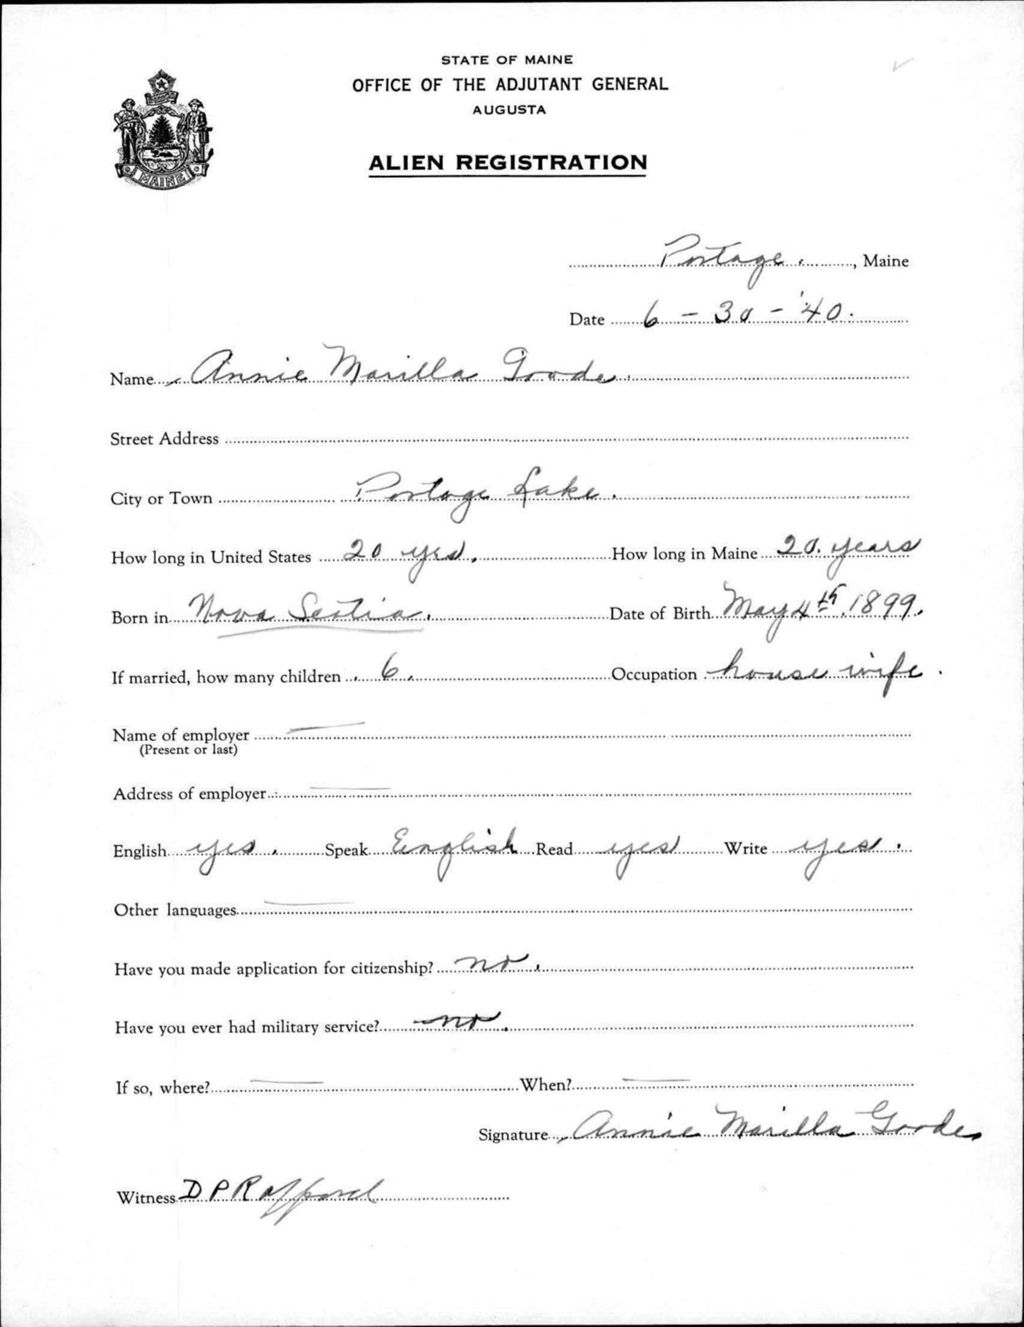 STATE OF MAINE
OFFICE OF THE ADJUTANT GENERAL
AUGUSTA
ALIEN REGISTRATION
MAINE
Portage., Maine
Date 6 - 30 - '40.
Name Annie Marilla Goode.
Street Address
City or Town Portage Lake.
How long in United States 20 yrs. How long in Maine 20. years
Born in Nova Scotia. Date of Birth May 4th, 1899.
If married, how many children 6. Occupation house wife.
Name of employer —
(Present or last)
Address of employer —
English yes. Speak English Read yes Write yes.
Other languages —
Have you made application for citizenship? no.
Have you ever had military service? no.
If so, where? — When? —
Signature Annie Marilla Goode
Witness D P Rafford